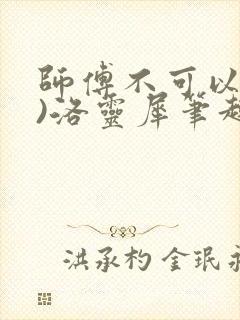 師傅不可以
)洛靈犀筆趣
洪承杓金珉永